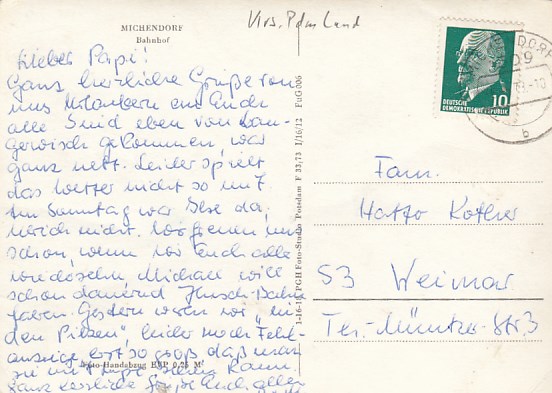 MICHENDORF
Bahnhof
Krs. Pdm Land
Lieber Papi!
Ganz herzliche Grüße von
uns Urlaubern an Euch
alle. Sind eben von Lan-
gerwisch gekommen, war
ganz nett. Leider spielt
das Wetter nicht so mit
Am Sonntag war Ilse da,
Ulrich nicht. Wir freuen uns
schon, wenn wir Euch alle
wiedersehn. Michael will
schon dauernd Husch-Bahn
fahren. Gestern waren wir „in
den Pilzen", leider noch Fehl-
anzeige erst so groß daß man
sie mit Lupe sehen kann.
Ganz herzliche Grüße Euch allen
Foto-Handabzug EVP 0,25 M
1-16-1 PGH Foto-Studio Potsdam F 33,73 I/16/12 FuG 006
10
DEUTSCHE
DEMOKRATISCHE REPUBLIK
b
Fam.
53 Weimar
Th.-Müntzer-Str. 3